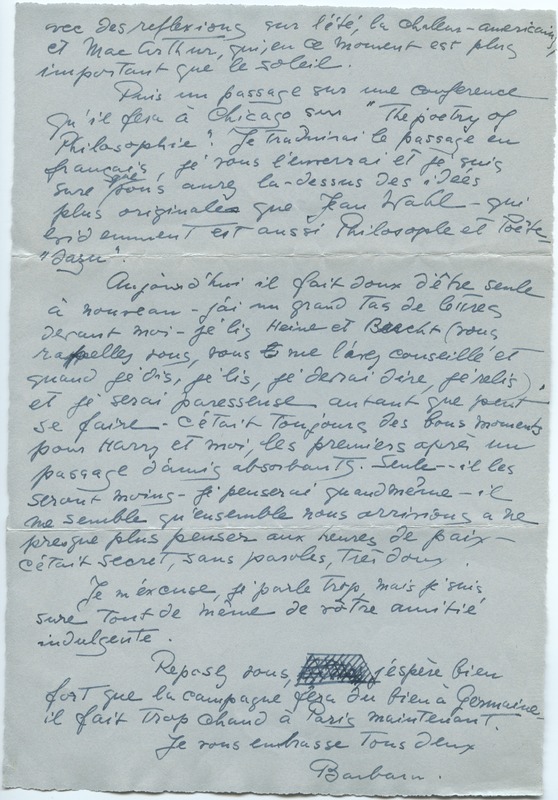 avec des reflexions sur l'été, la chaleur-americaine,
et Mac Arthur, qui, en ce moment est plus
important que le soleil.
Puis un passage sur une conference
qu'il fera à Chicago sur "The poetry of
Philosophie". Je traduirai le passage en
français, je vous l'enverrai et je suis
sure que vous aurez la-dessus des idées
plus originales que Jean Wahl - qui
evidemment est aussi Philosophe et Poète-
Aujourd'hui il fait doux d'être seule
à nouveau - j'ai un grand tas de lettres
devant moi - je lis Heine et Brecht (vous
rappellez vous, vous me l'avez conseillé et
quand je dis, je lis, je devrai dire, je relis),
et je serai paresseuse autant que peut
se faire - c'était toujours des bons moments
pour Harry et moi, les premiers après un
passage d'amis absorbants. Seule -- il les
seront moins - je penserai quandmême - il
me semble qu'ensemble nous arrivions a ne
presque plus penser aux heures de paix -
c'était secret, sans paroles, très doux.
Je m'éxcuse, je parle trop, mais je suis
sure tout de même de vôtre amitié
indulgente.
Reposez vous, j'espère bien
fort que la campagne fera du bien à Germaine-
il fait trop chaud à Paris maintenant.
Je vous embrasse tous deux
Barbara.